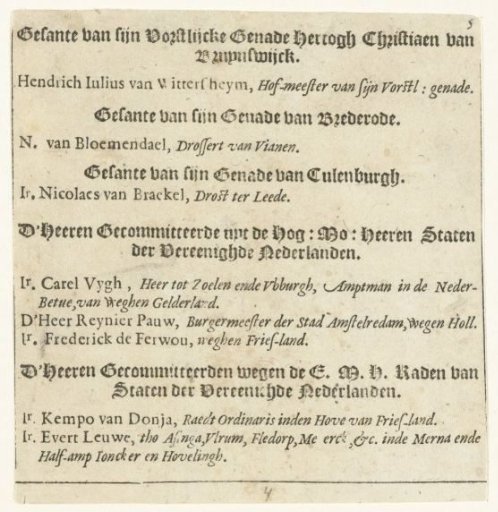 5
Gesante van sijn Vorstlijcke Genade Hertogh Christiaen van
Brunswijck.
Hendrich Iulius van Wittersheym, Hof-meester van sijn Vorstl : genade.
Gesante van sijn Genade van Brederode.
N. van Bloemendael, Drossert van Vianen.
Gesante van sijn Genade van Culenburgh.
Ir. Nicolaes van Brackel, Drost ter Leede.
D'Heeren Gecommitteerde uyt de Hog : Mo : Heeren Staten
der Vereenighde Nederlanden.
Ir. Carel Vygh , Heer tot Zoelen ende Vbburgh, Amptman in de Neder-
Betue, van weghen Gelderland.
D'Heer Reynier Pauw, Burgermeester der Stad Amstelredam, wegen Holl.
Ir. Frederick de Ferwou, weghen Fries-land.
D'Heeren Gecommitteerden wegen de E. M. H. Raden van
Staten der Vereenichde Nederlanden.
Ir. Kempo van Donja, Raedt Ordinaris inden Hove van Fries-land.
Ir. Evert Leuwe, tho Asinga, Vlrum, Fledorp, &c. inde Merna ende
Half-amp Ioncker en Hovelingh.
4